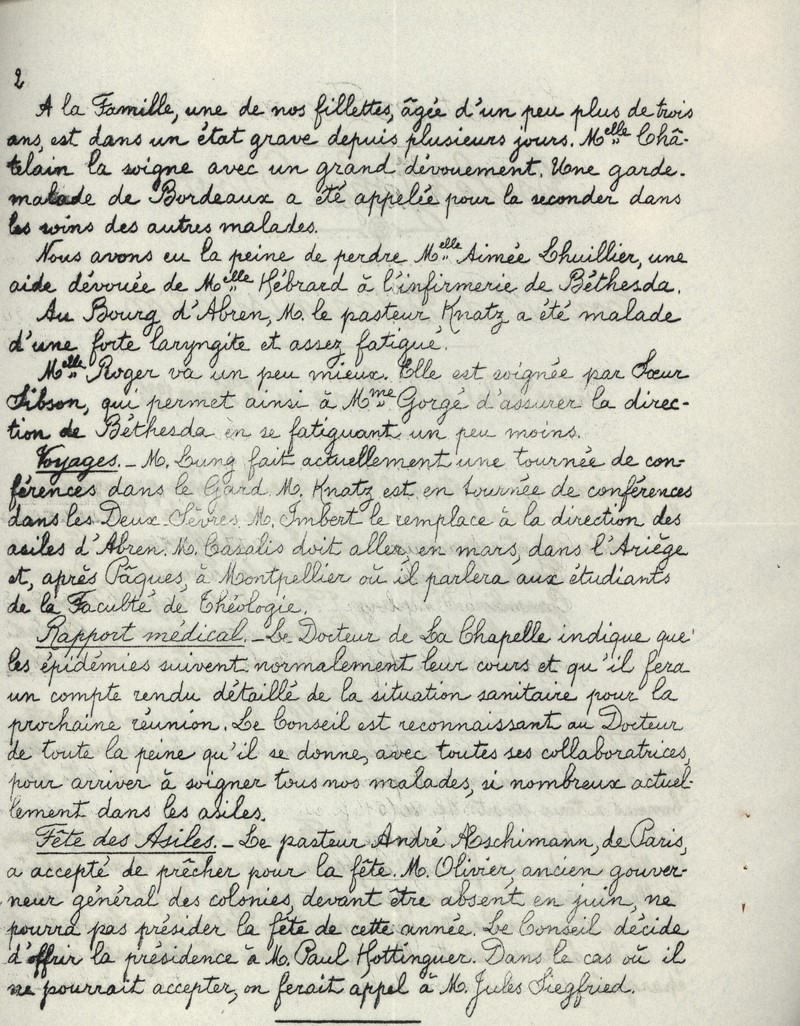 2
A la Famille, une de nos fillettes, âgée d'un peu plus de trois
ans, est dans un état grave depuis plusieurs jours. Melle Châ-
telain la soigne avec un grand dévouement. Une garde-
malade de Bordeaux a été appelée pour la seconder dans
les soins des autres malades.
Nous avons eu la peine de perdre Melle Aimée Lhuillier, une
aide dévouée de Melle Hébrard à l'infirmerie de Béthesda.
Au Bourg d'Abren, M. le pasteur Knatz a été malade
d'une forte laryngite et assez fatigué.
Melle Roger va un peu mieux. Elle est soignée par Sœur
Sibson, qui permet ainsi à Mme Gorgé d'assurer la direc-
tion de Béthesda en se fatiguant un peu moins.
Voyages. - M. Lung fait actuellement une tournée de con-
férences dans le Gard. M. Knatz est en tournée de conférences
dans les Deux Sèvres. M. Imbert le remplace à la direction des
asiles d'Abren. M. Casalis doit aller, en mars, dans l'Ariège
et, après Pâques, à Montpellier où il parlera aux étudiants
de la Faculté de Théologie.
Rapport médical. - Le Docteur de La Chapelle indique que
les épidémies suivent normalement leur cours et qu'il fera
un compte rendu détaillé de la situation sanitaire pour la
prochaine réunion. Le Conseil est reconnaissant au Docteur
de toute la peine qu'il se donne, avec toutes ses collaboratrices,
pour arriver à soigner tous nos malades, si nombreux actuel-
lement dans les asiles.
Fête des Asiles. - Le pasteur André Æschimann, de Paris,
a accepté de prêcher pour la fête. M. Olivier, ancien gouver-
neur général des colonies, devant être absent en juin, ne
pourra pas présider la fête de cette année. Le Conseil décide
d'offrir la présidence à M. Paul Hottinguer. Dans le cas où il
ne pourrait accepter, on ferait appel à M. Jules Siegfried.